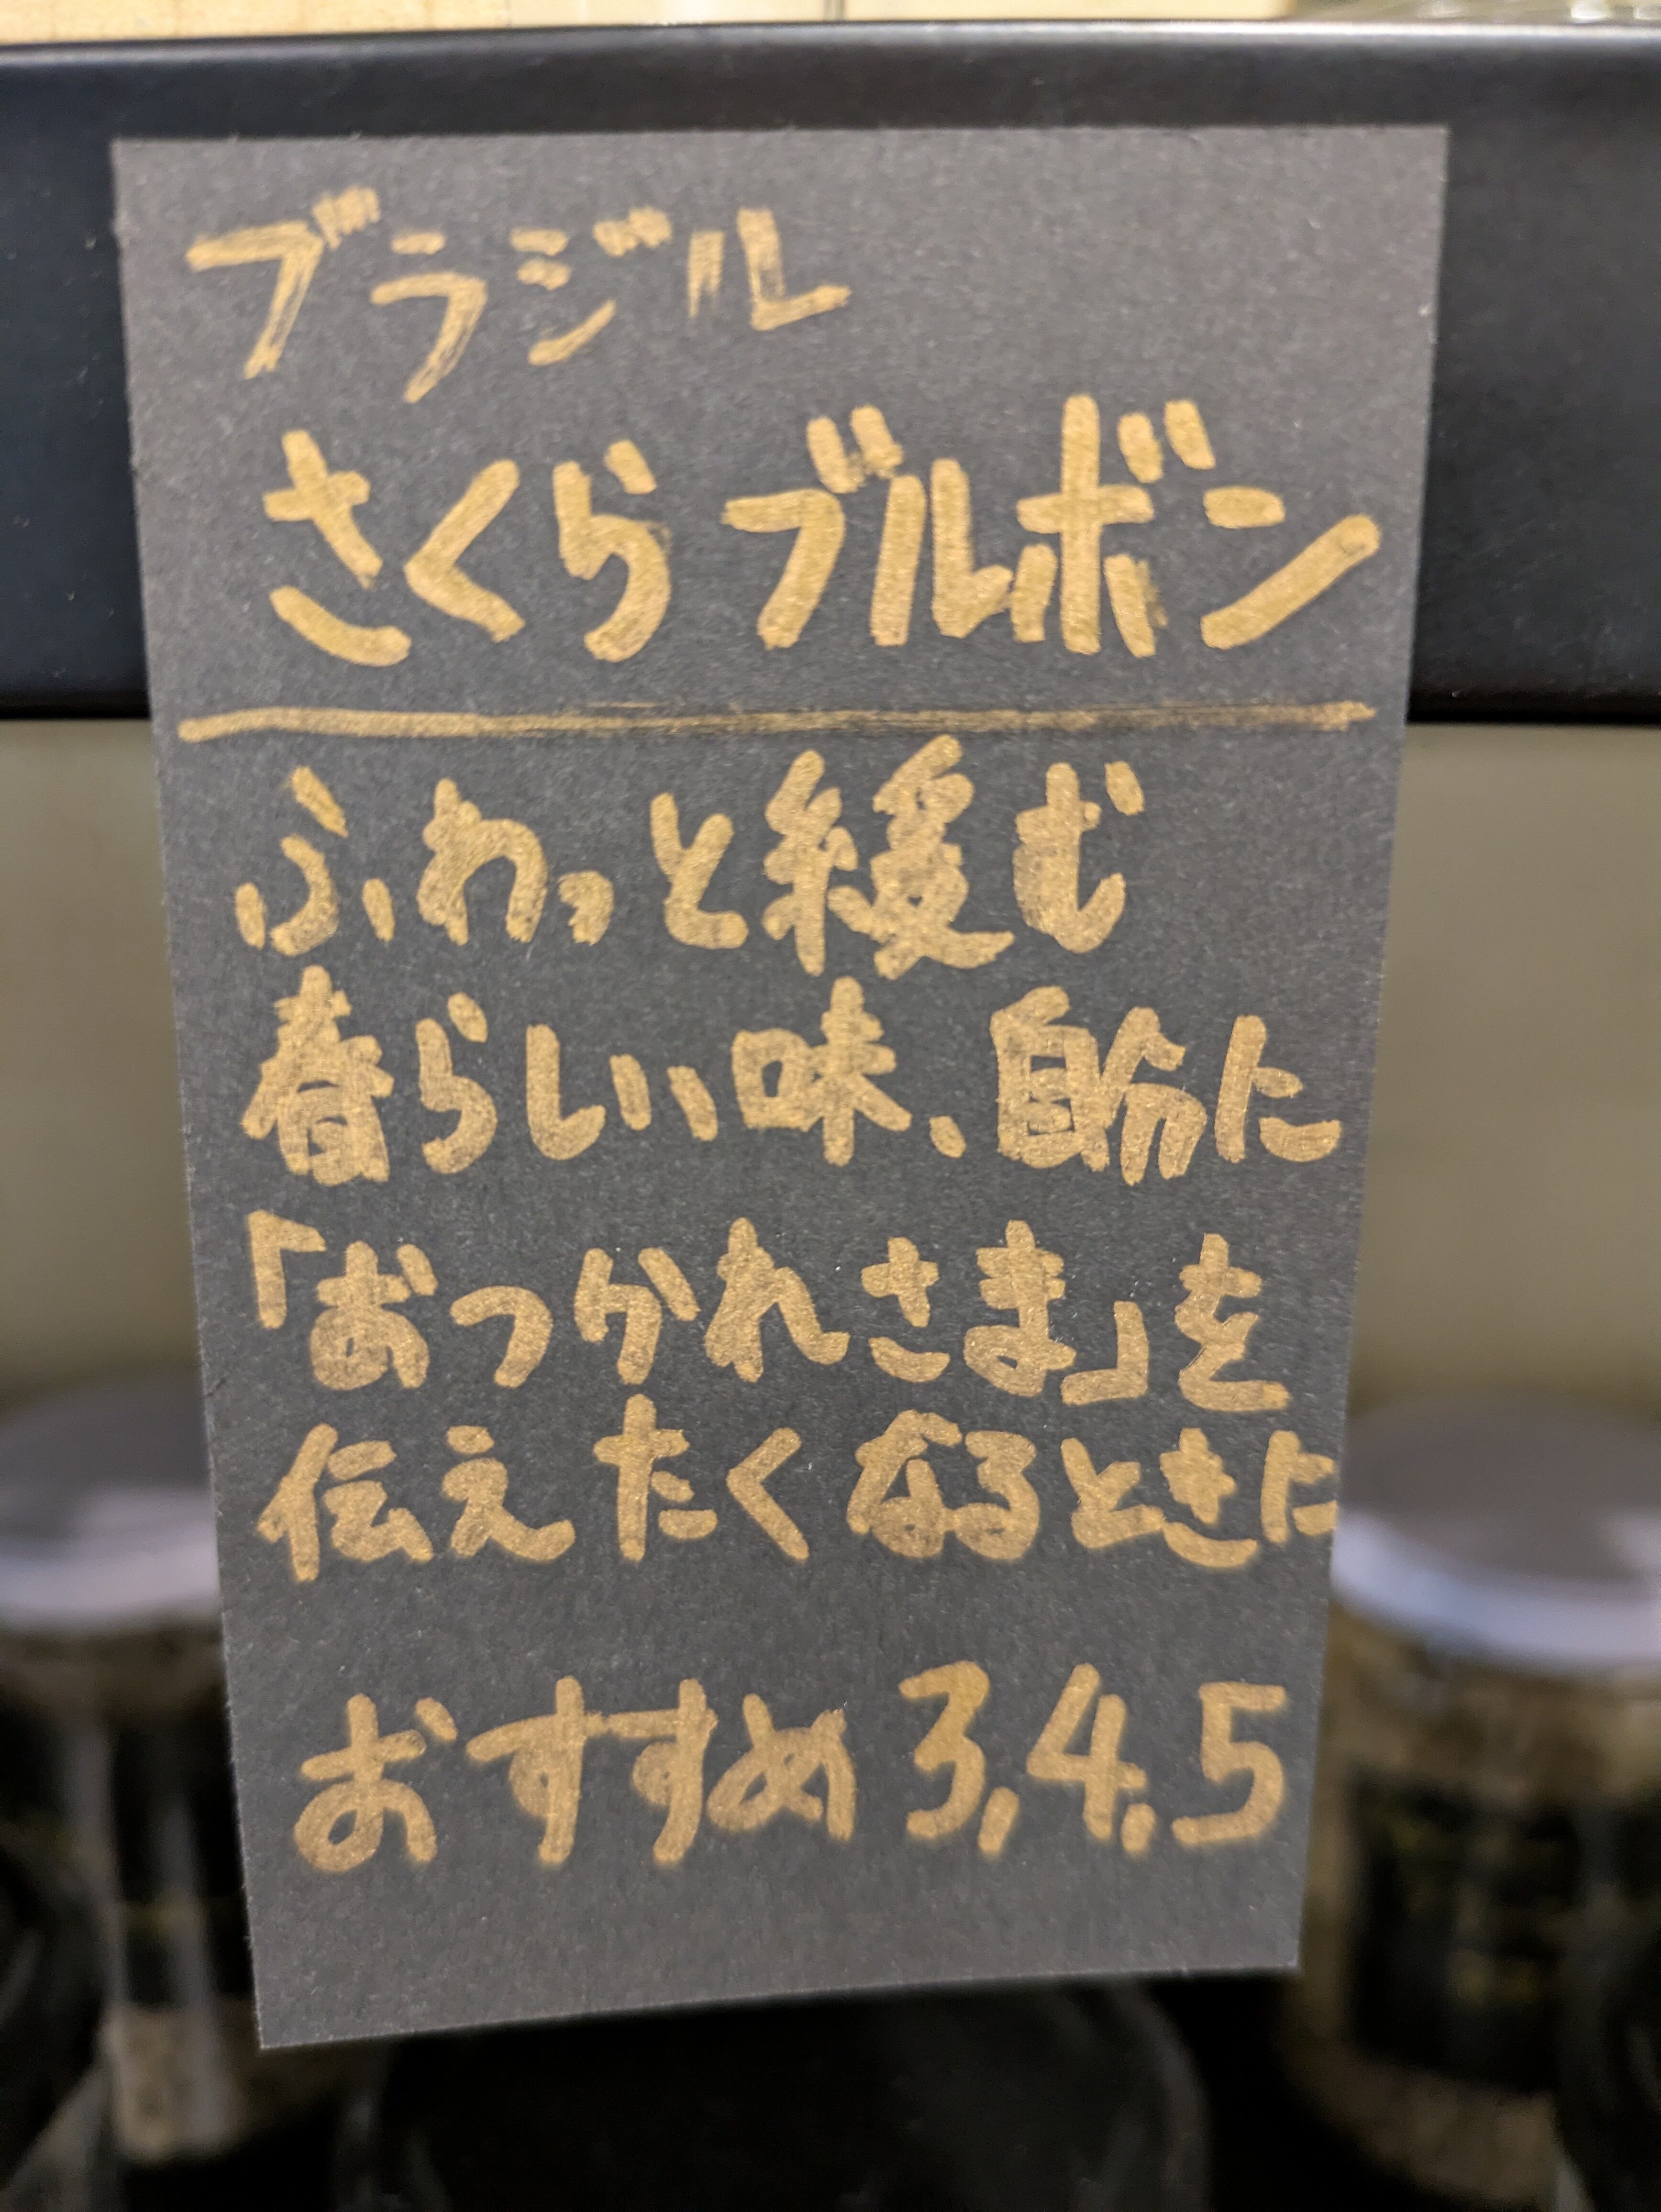 ブラジル
さくらブルボン
ふわっと緩む
春らしい味、自分に
「おつかれさま」を
伝えたくなるときに
おすすめ 3,4,5